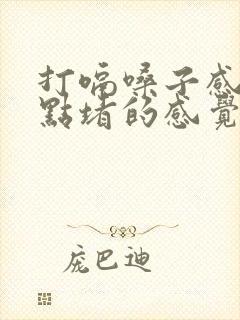 打嗝嗓子感
點堵的感覺
庞巴迪